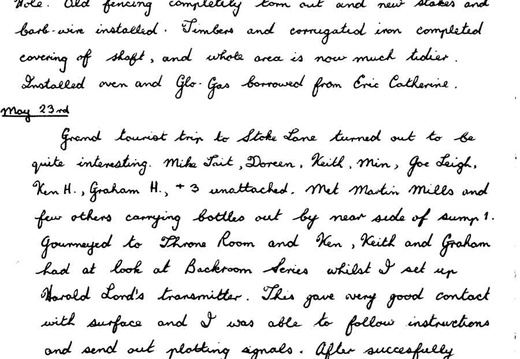 Hole. Old fencing completely torn out and new stakes and
barb-wire installed. Timbers and corrugated iron completed
covering of shaft, and whole area is now much tidier.
Installed oven and Glo-Gas borrowed from Eric Catherine.
May 23rd
Grand tourist trip to Stoke Lane turned out to be
quite interesting. Mike Tait, Doreen, Keith, Min, Joe Leigh,
Ken H., Graham H., + 3 unattached. Met Martin Mills and
few others carrying bottles out by near side of sump 1.
Journeyed to Throne Room and Ken, Keith and Graham
had at look at Backroom Series whilst I set up
Harold Lord's transmitter. This gave very good contact
with surface and I was able to follow instructions
and send out plotting signals. After succesfully